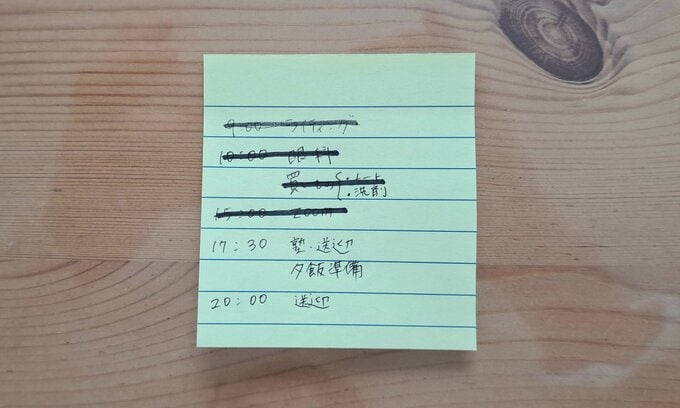 9:00 ライティング
10:00 眼科
買いもの{・ノート
・洗剤
15:00 zoom
17:30 塾・送迎
夕飯準備
20:00 送迎